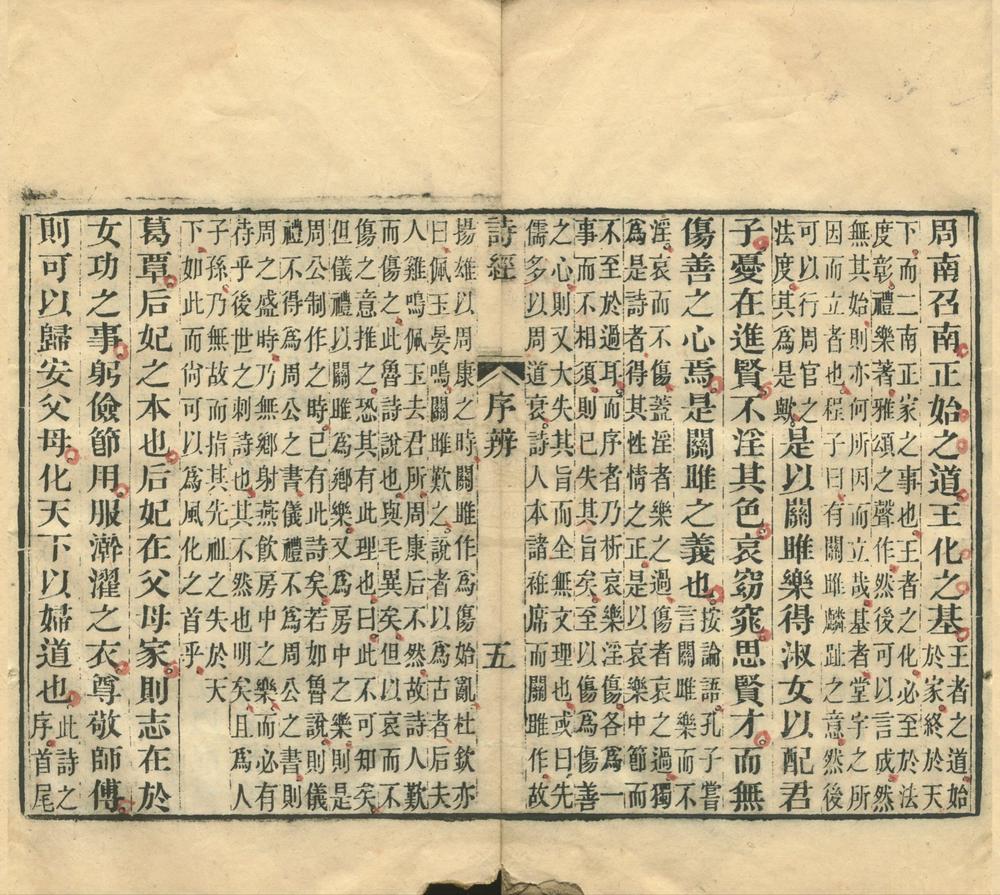 周南召南正始之道王化之基王者之道始
於家終於天
下而二南正家之事也王者之化必至於法
度彰禮樂著雅頌之聲作然後可以言成然
無其始則亦何所因而立哉基者堂宇之所
因而立者也程子曰有關雎麟趾之意然後
可以行周官之
法度其爲是歟是以關雎樂得淑女以配君
子憂在進賢不淫其色哀窈窕思賢才而無
傷善之心焉是關雎之義也按論語孔子嘗
言關雎樂而不
淫哀而不傷蓋淫者樂之過傷者哀之過獨
爲是詩者得其性情之正是以哀樂中節而
不至於過耳而序者乃析哀樂淫傷各爲一
事而不相須則已失其旨矣至以傷爲傷善
之心則又大失其旨而全無文理也或曰先
儒多以周道衰詩人本諸袵席而關雎作故
詩經
序辨
五
揚雄以周康之時關雎作爲傷始亂杜欽亦
曰佩玉晏鳴關雎歎之說者以爲古者后夫
人雞鳴佩玉去君所周康后不然故詩人歎
而傷之此魯詩說也與毛異矣但以哀而不
傷之意推之恐其有此理也曰此不可知矣
但儀禮以關雎爲鄉樂又爲房中之樂則是
周公制作之時已有此詩矣若如魯說則儀
禮不得爲周公之書儀禮不爲周公之書則
周之盛時乃無鄉射燕飲房中之樂而必有
待乎後世之刺詩也其不然也明矣且爲人
子孫乃無故而指其先祖之失於天
下如此而尙可以爲風化之首乎
葛覃后妃之本也后妃在父母家則志在於
女功之事躬儉節用服澣濯之衣尊敬師傅
則可以歸安父母化天下以婦道也此詩之
序首尾